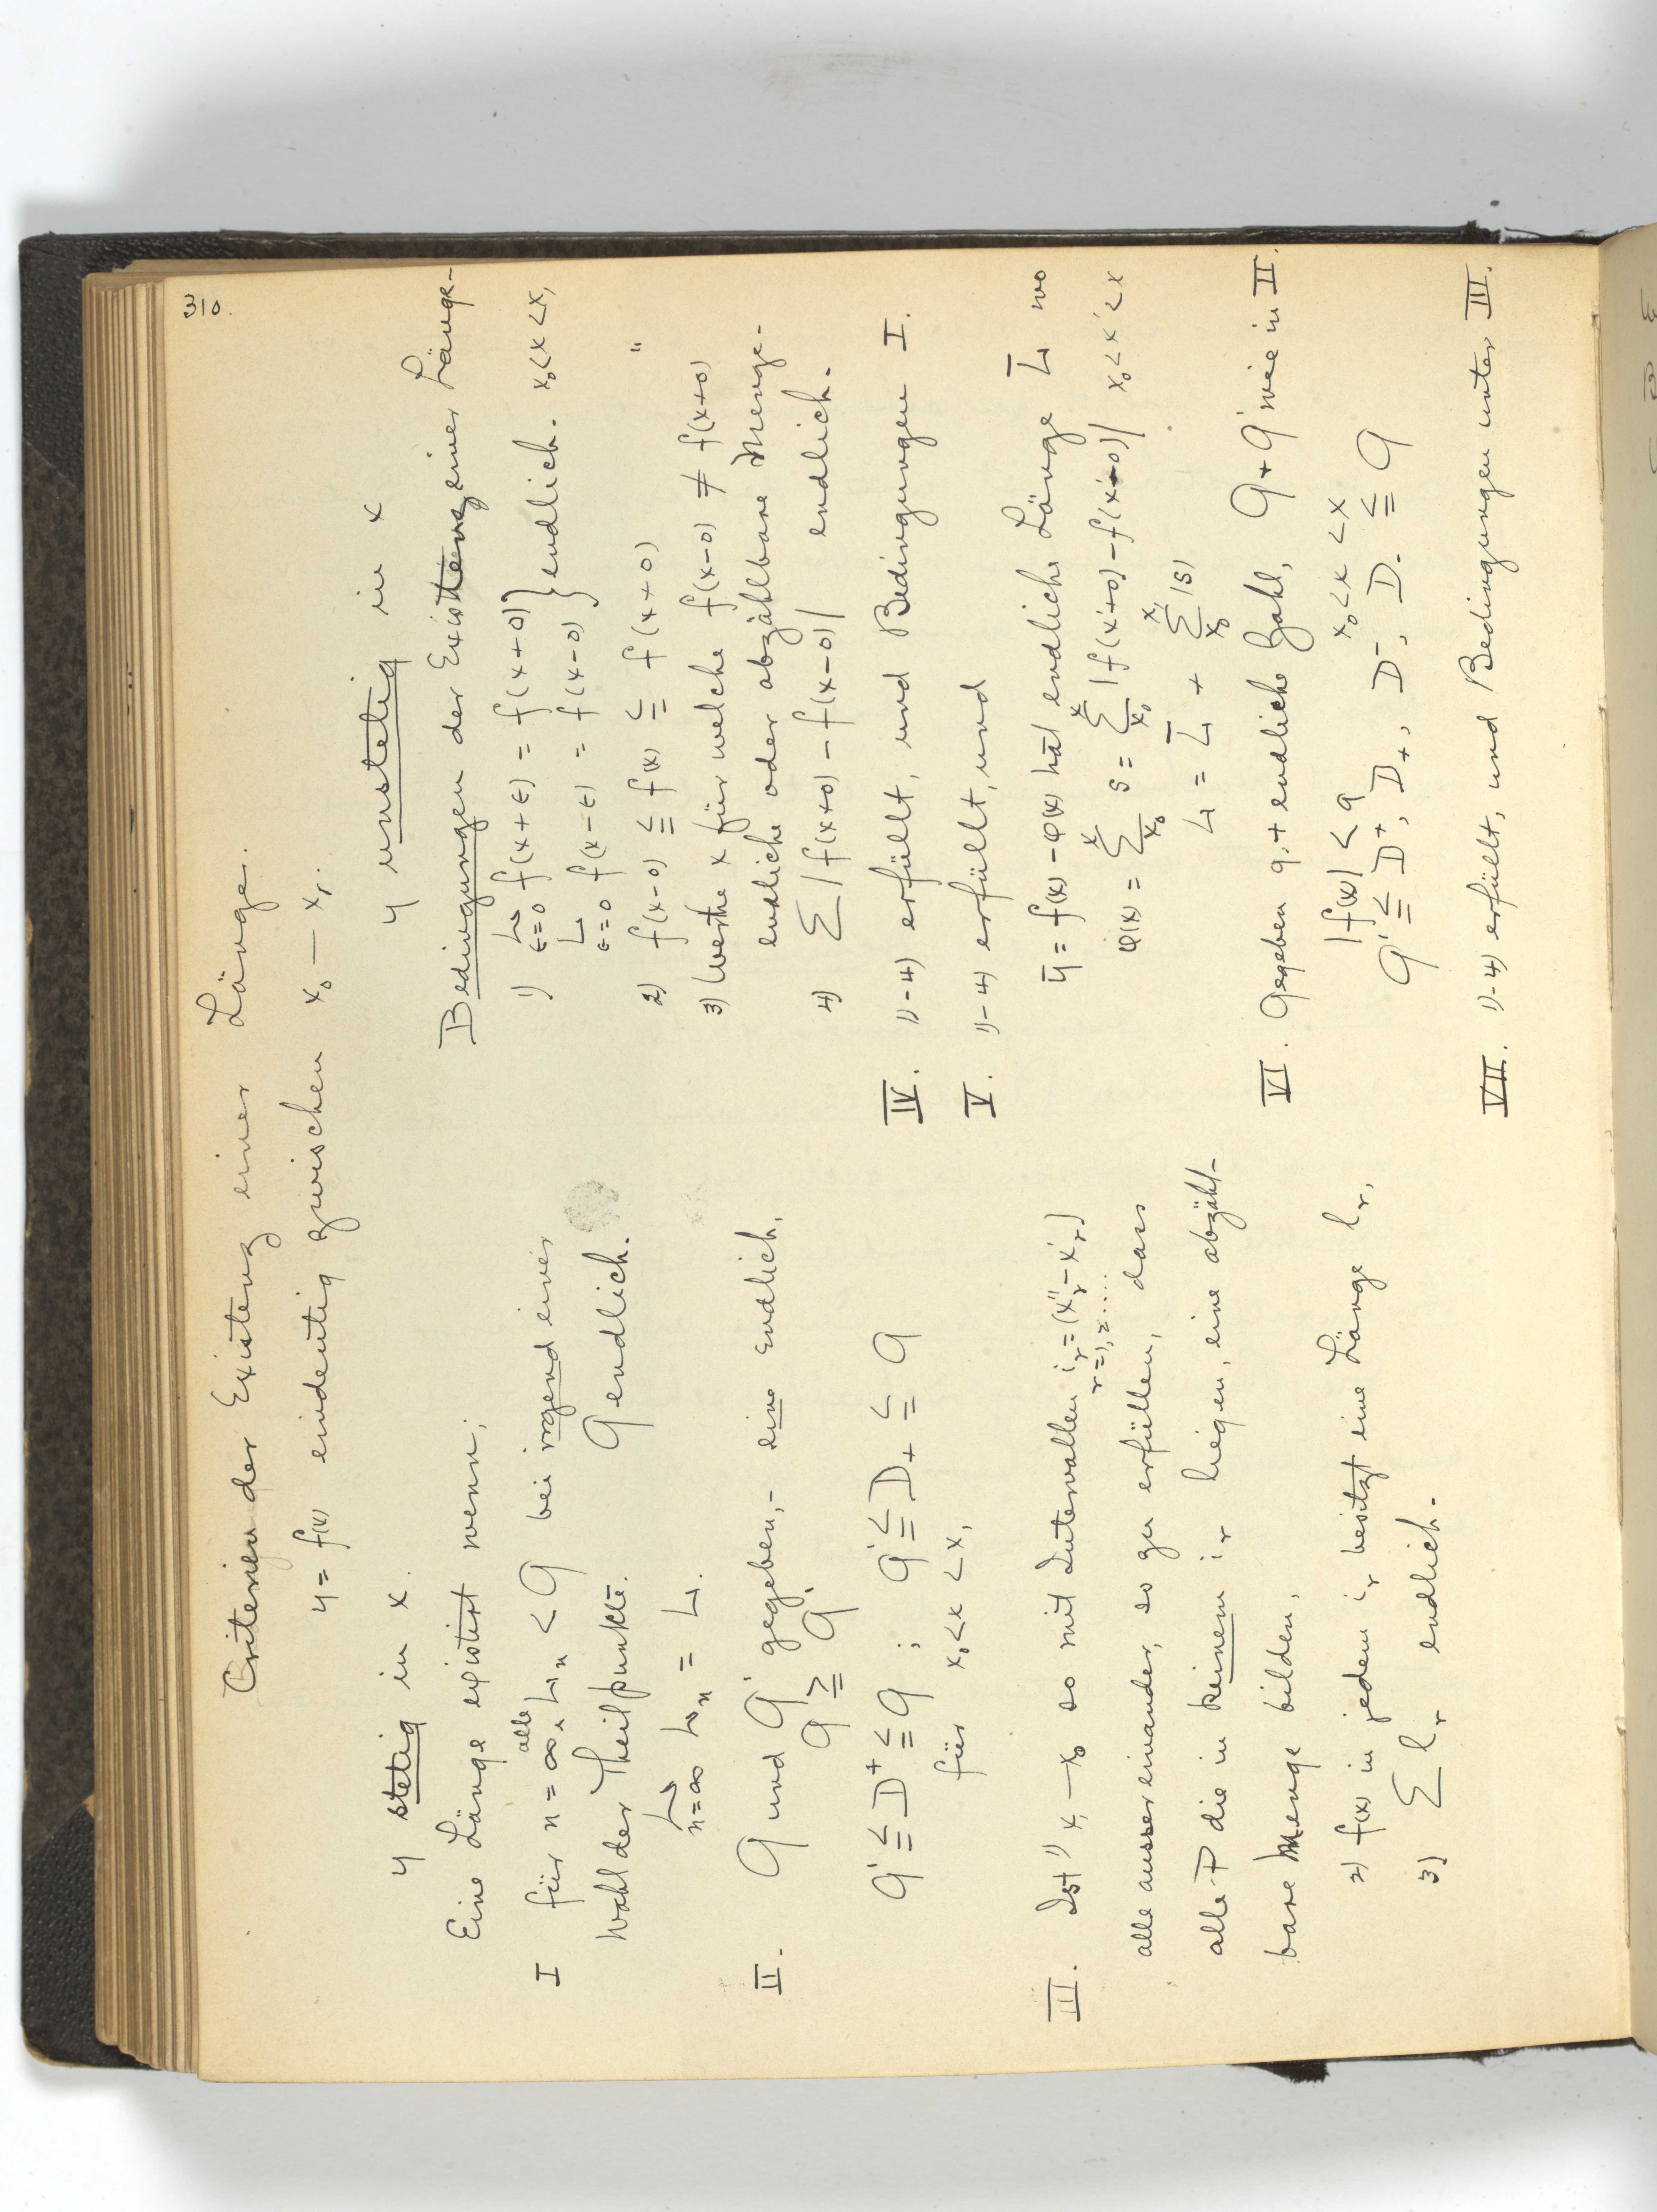 310.
Criterien der Existenz einer Länge.
y = f(x) eindeutig zwischen x₀ — x₁.
y stetig in x.
Eine Länge existirt wenn:
I für n = ∞, alle Lₙ < G bei irgend einer
Wahl der Theilpunkte. G endlich.
L Lₙ = L.
n=∞
II. G und G' gegeben,- eine endlich,
G ≧ G'.
G' ≦ D⁺ ≦ G ; G' ≦ D₊ ≦ G
für x₀ < x < x₁
III. Ist 1) x₁ — x₀ so mit Intervallen iᵣ = (x''ᵣ - x'ᵣ)
r = 1, 2, .....
alle aussereinander, so zu erfüllen, dass
alle P die in keinem iᵣ liegen, eine abzähl-
bare Menge bilden,
2) f(x) in jedem iᵣ besitzt eine Länge lᵣ,
3) Σ lᵣ endlich.
y unstetig in x
Bedingungen der Existenz einer Länge-
1) L f(x + ε) = f(x + 0) } endlich. x₀ < x < x₁
ε=0
L f(x - ε) = f(x - 0)
ε=0
2) f(x-0) ≦ f(x) ≦ f(x+0) "
3) Werthe x für welche f(x-0) ≠ f(x+0)
endliche oder abzählbare Menge.
4) Σ | f(x+0) - f(x-0) | endlich.
IV. 1)-4) erfüllt, und Bedingungen I.
V. 1)-4) erfüllt, und
ȳ = f(x) - φ(x) hat endliche Länge L̄ wo
φ(x) = Σ s = Σ | f(x'+0) - f(x'-0) | x₀ < x' < x
L = L̄ + Σ |s|
VI. Gegeben g, + endliche Zahl, G + G' wie in II.
| f(x) | < g x₀ < x < x
G' ≦ D⁺, D₊, D⁻, D₋ ≦ G
VII. 1)-4) erfüllt, und Bedingungen unter III.